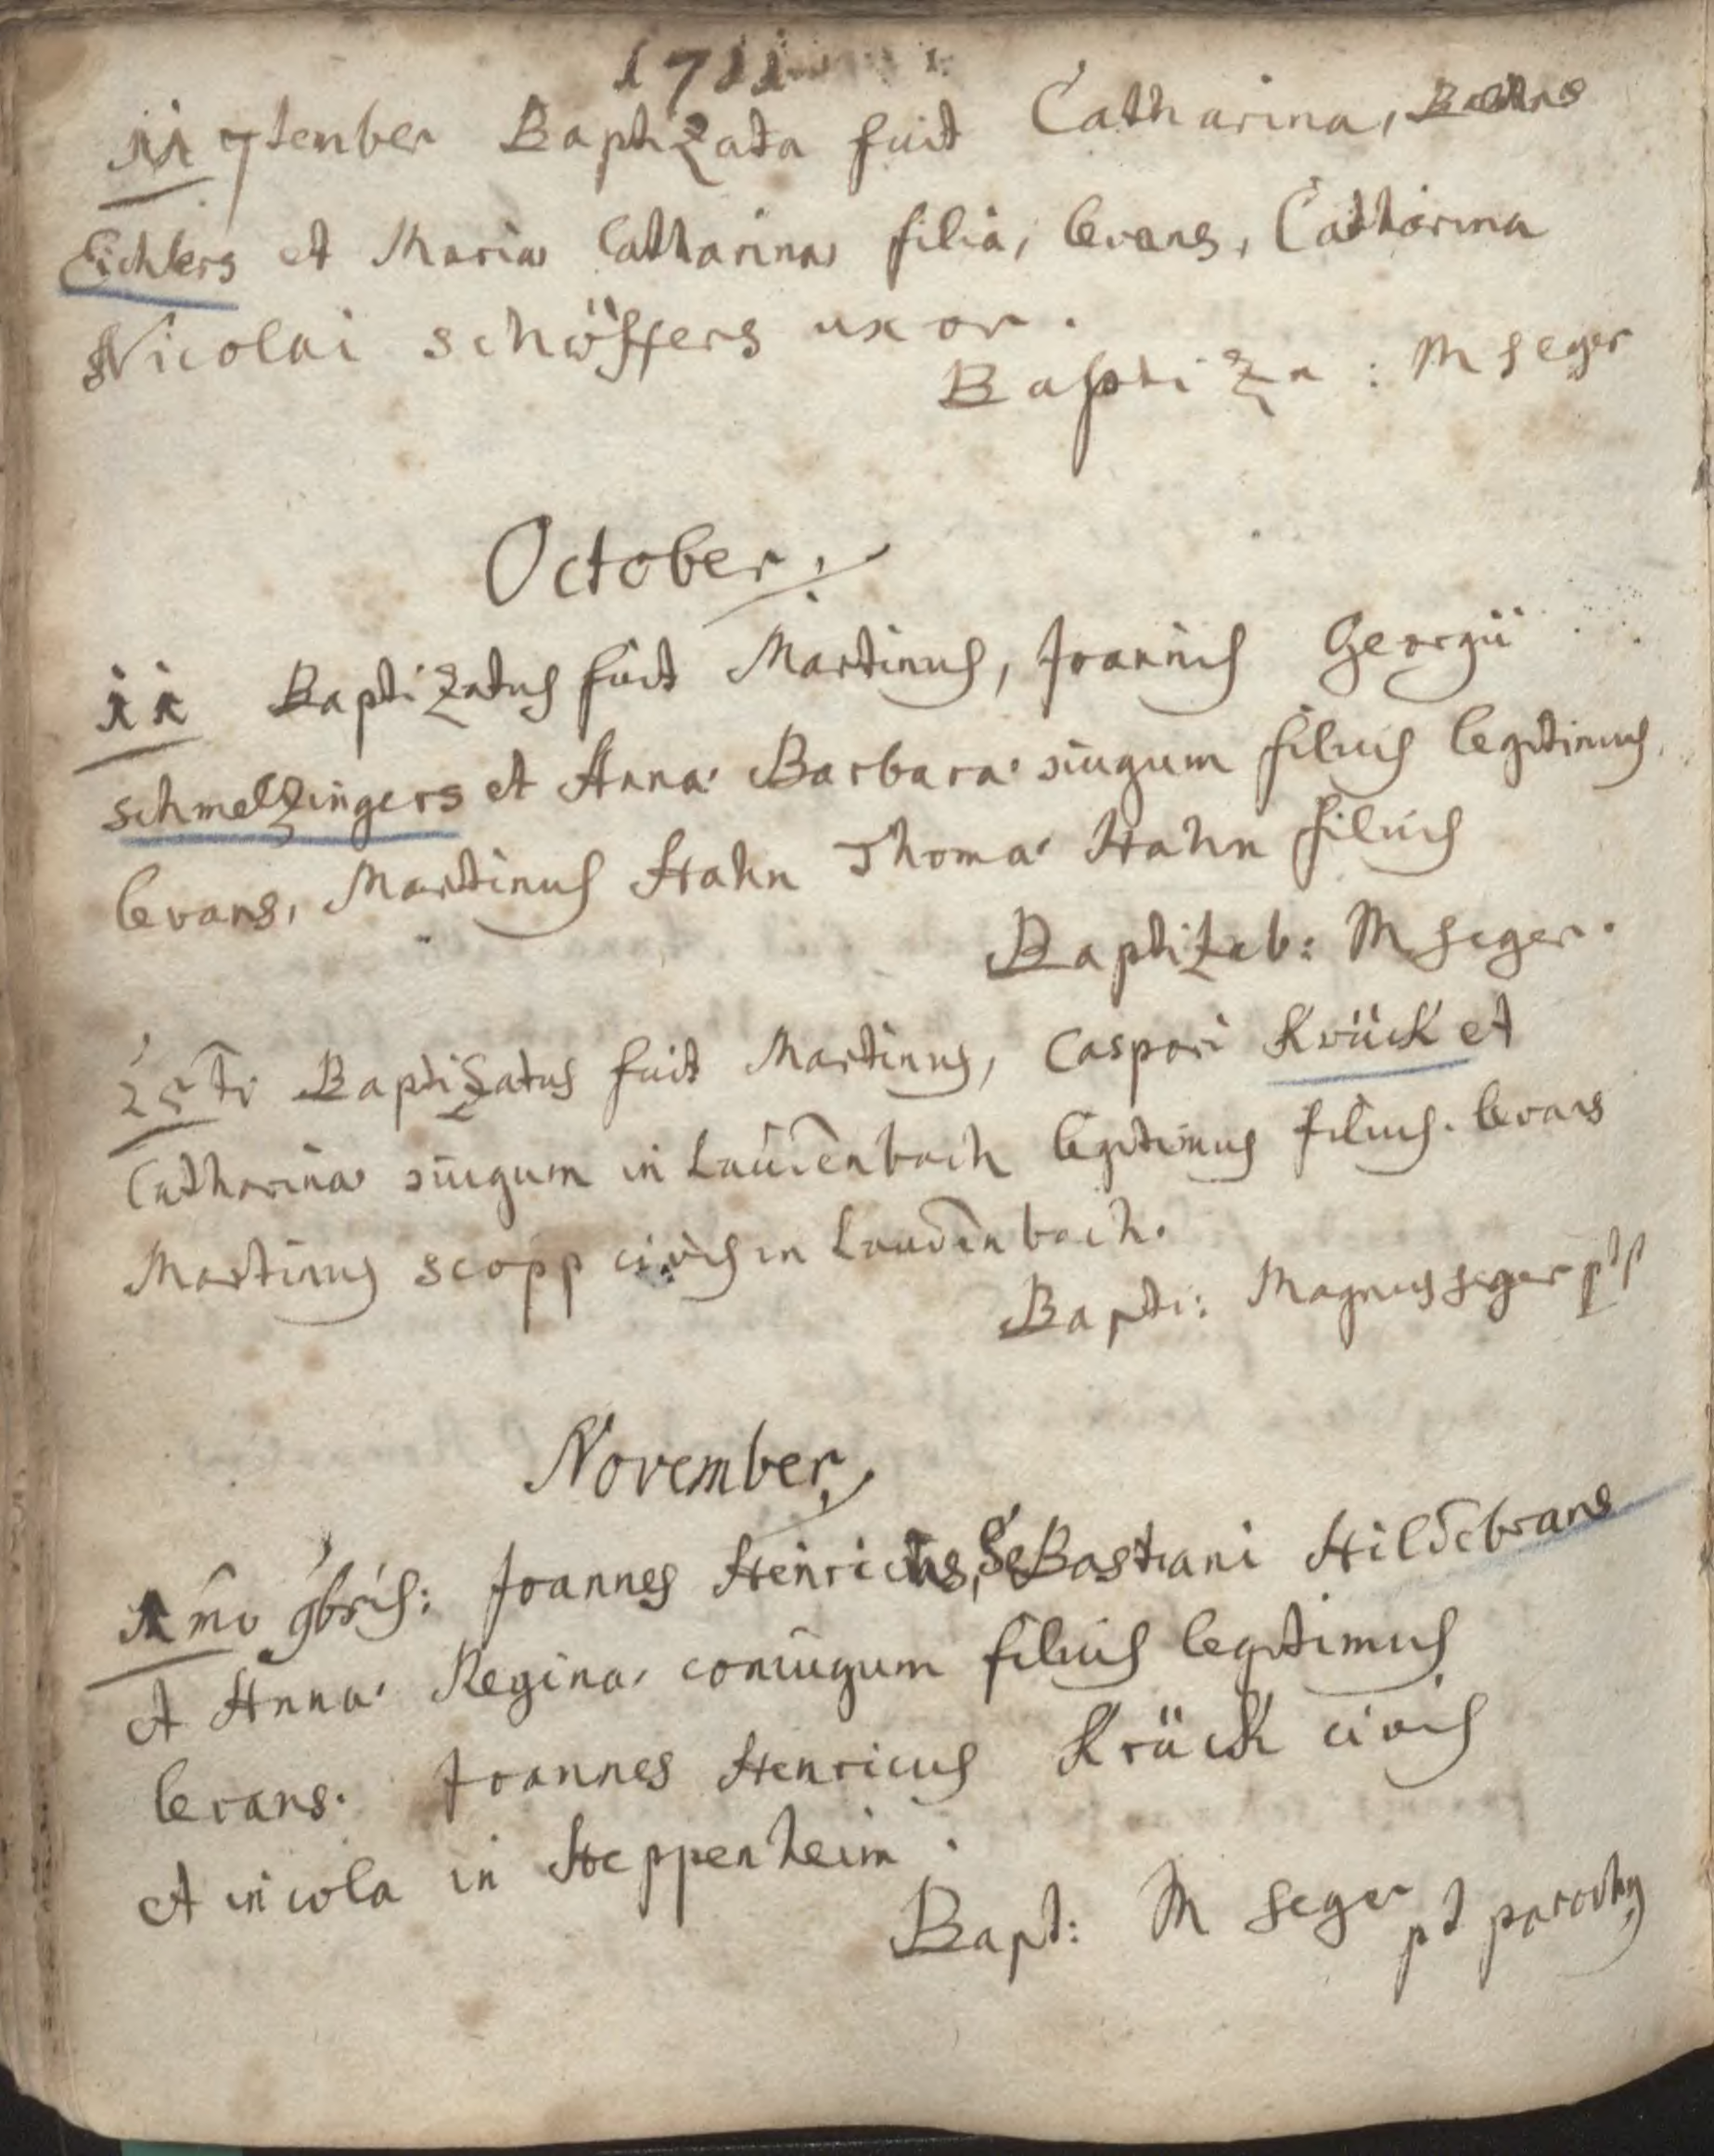 1711
11 7tember Baptizata fuit Catharina,
Eichlers et Maria Catharina filia, levans, Catharina
Nicolai schöffers uxor.
Baptiza: M seger
October.
11 Baptizatus fuit Martinus, Joannis Georgii
schmelzingers et Anna Barbara iugum filius legitimus
levans, Martinus Hahn Thoma Hahn filius
Baptizab: M seger.
25ti Baptizatus fuit Martinus, Caspari Krück et
Catharina iugum in Laudenbach legitimus filius. levans
Martinus scopp civis in Laudenbach.
Bapti: Magnus seger
November
1mo 9bris: Joannes Henricus, Sebastiani Hildebrans
et Anna Regina coniugum filius legitimus
levans. Joannes Henricus Kräck civis
et incola in Heppenheim.
Bapt: M seger pt parochus